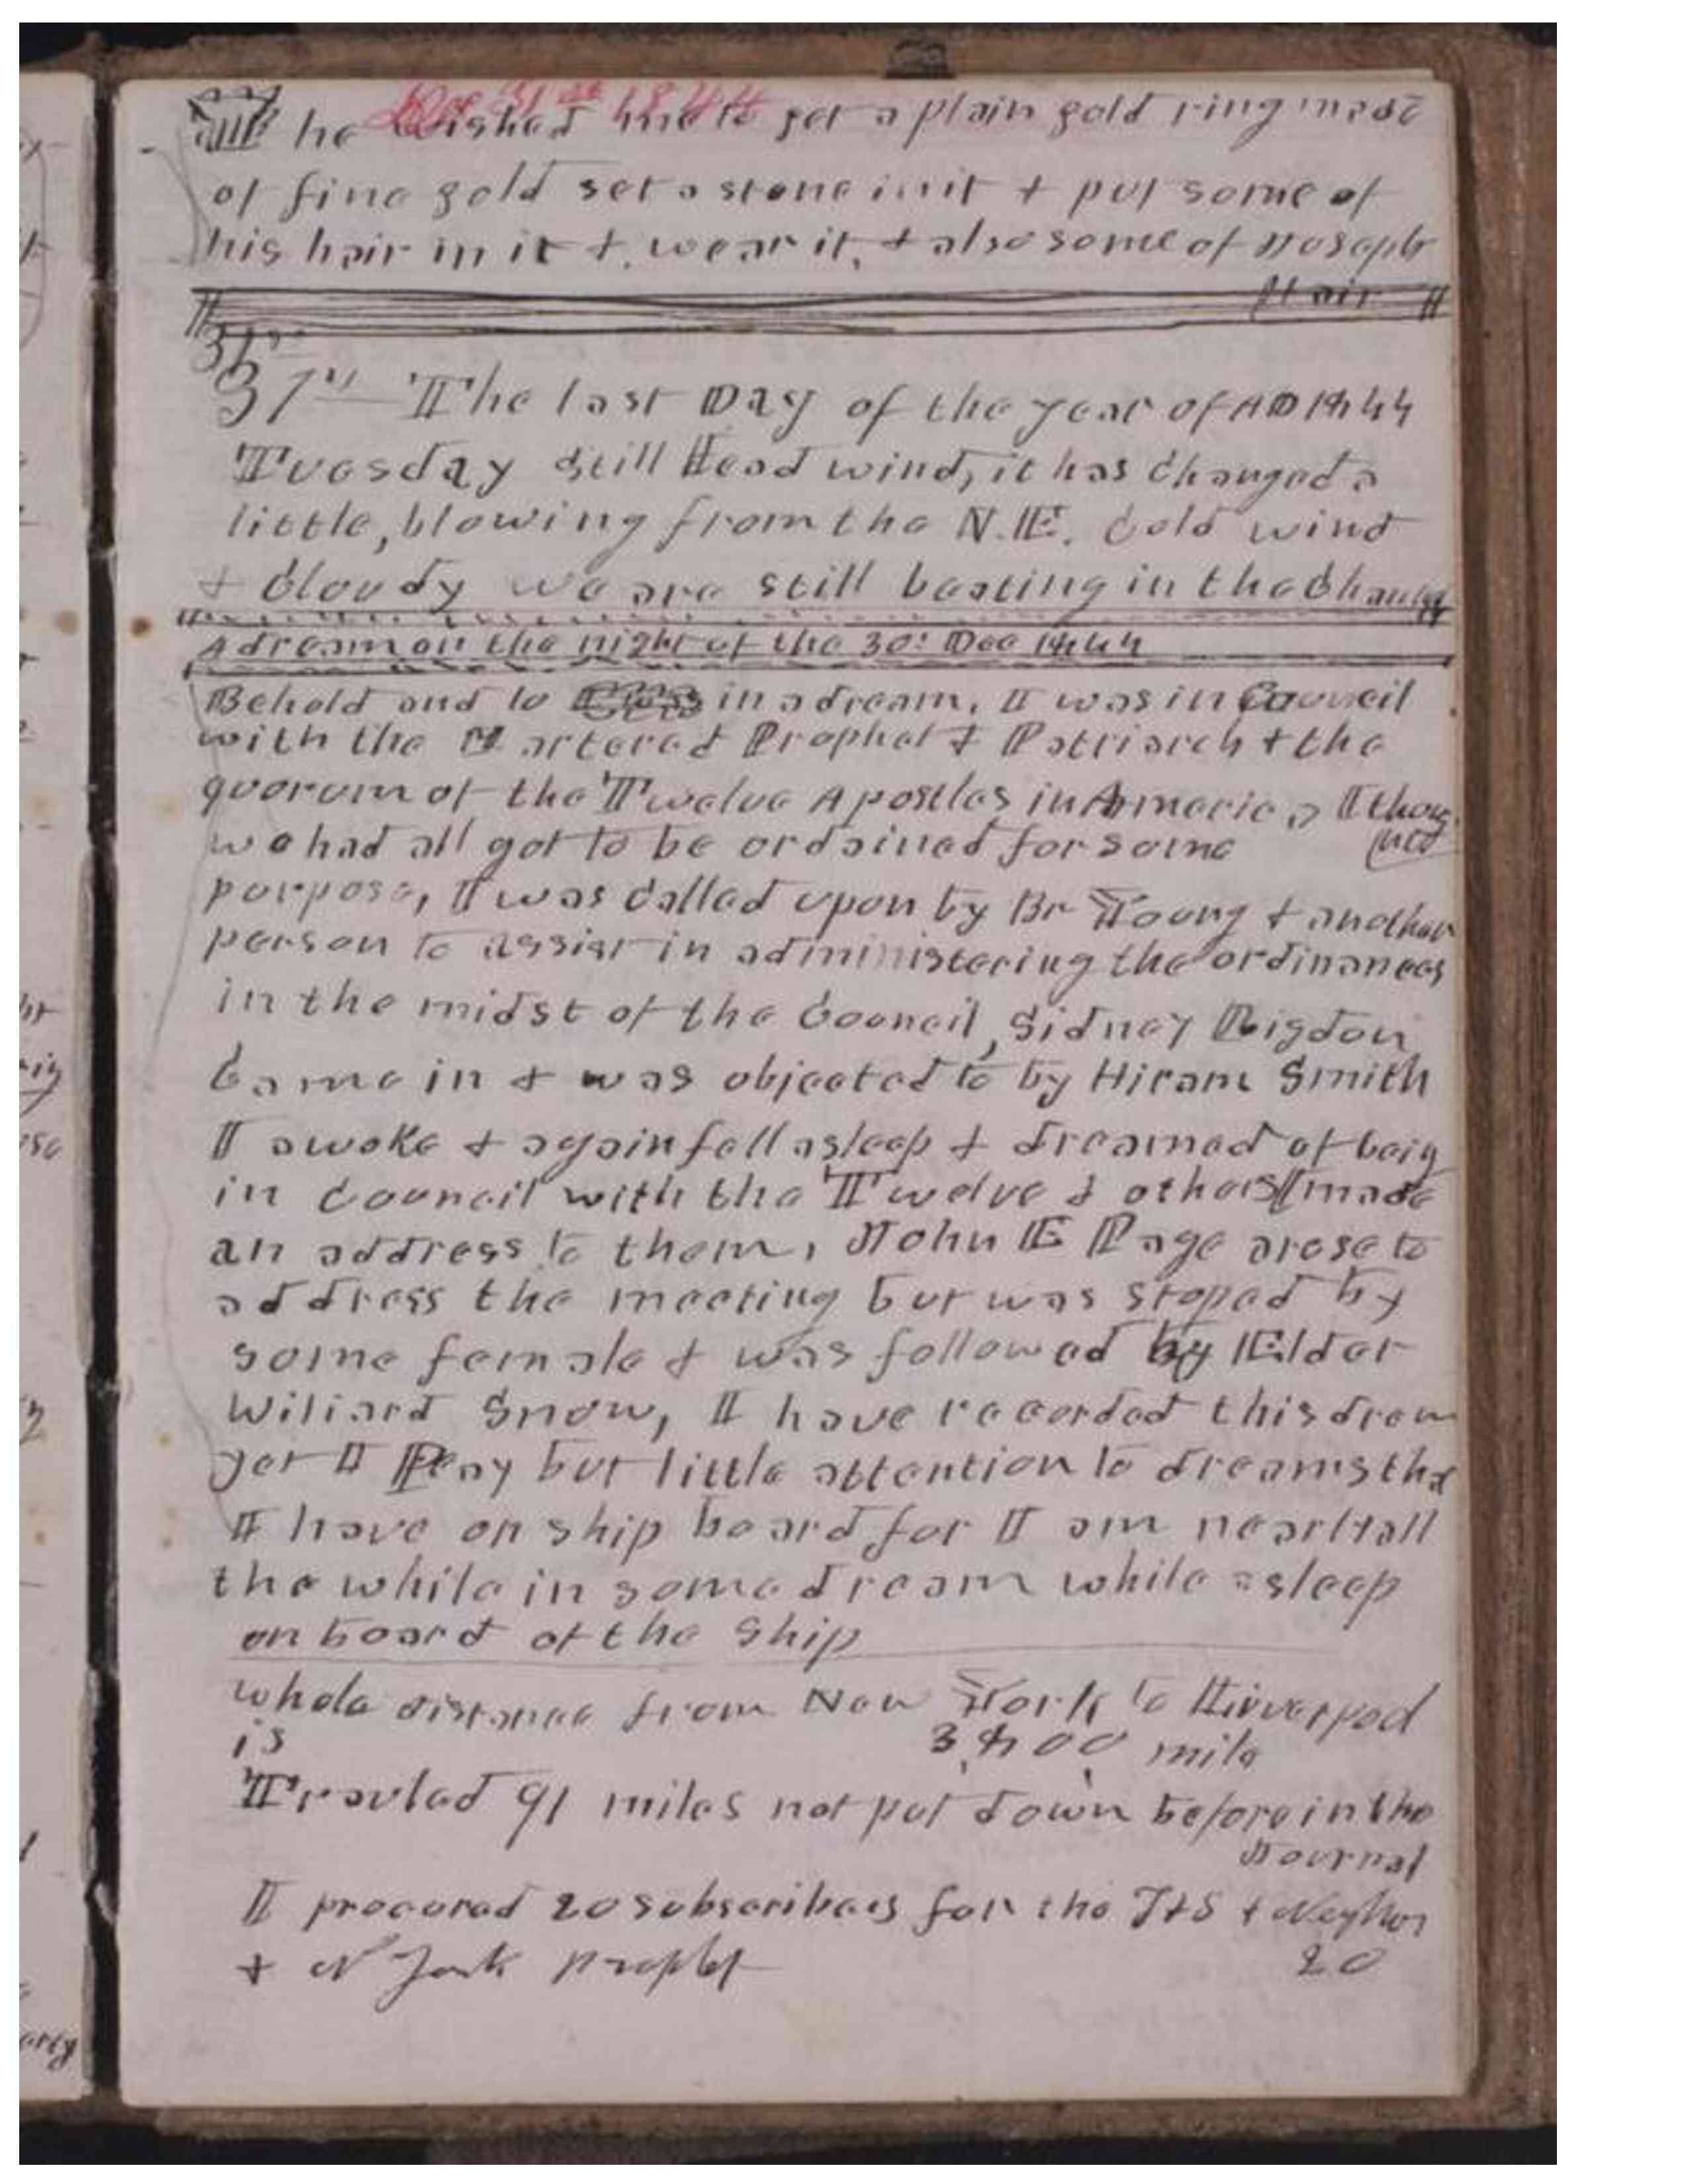 Dec 31st 1844
he wished me to get a plain gold ring made
of fine gold set a stone in it + put some of
his hair in it +. wear it, + also some of Joseph
Hair
31st
31st The last Day of the year of AD 1844
Tuesday still Head wind, it has changed a
little, blowing from the N.E. Cold wind
+ Cloudy we are still beating in the Channel
A dream on the night of the 30: Dec 1844
Behold and lo in a dream, I was in Council
with the Martered Prophet & Patriarch + the
quorum of the Twelve Apostles in America I thoug
ht
we had all got to be ordained for some
purpose, I was Called upon by Br Young + another
person to assist in administering the ordinances
in the midst of the Council, Sidney Rigdon
Came in + was objected to by Hiram Smith
I awoke + again fell asleep + dreamed of beig
in Council with the Twelve & others I made
an address to them, John E Page arose to
address the meeting but was stoped by
some female & was followed by Elder
Wiliard Snow, I have recorded this dream
yet I Pay but little attention to dreams that
I have on ship board for I am nearly all
the while in some dream while asleep
on board of the Ship
whole distance from New York to Liverpool
is 3,800 mile
Travled 91 miles not put down before in the
Journal
I procured 20 subscribers for the T+S + Neighbor
+ N York Prophet 20